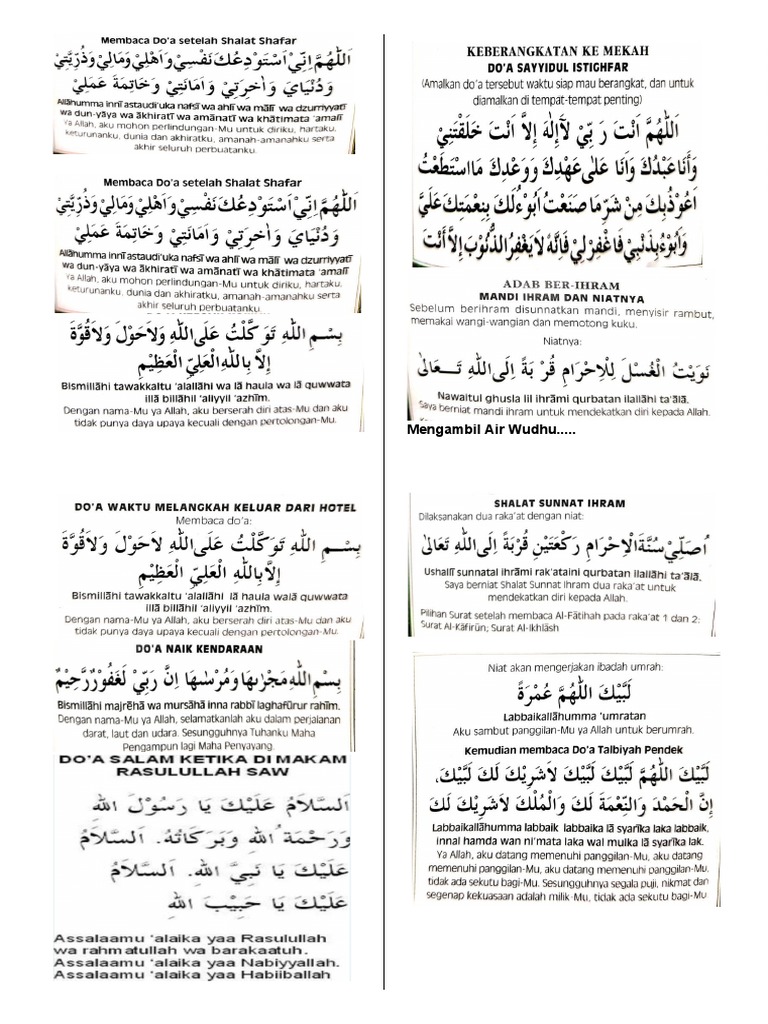 Membaca Do'a setelah Shalat Shafar
اَللّٰهُمَّ اِنِّيْ اَسْتَوْدِعُكَ نَفْسِيْ وَاَهْلِيْ وَمَالِيْ وَذُرِّيَّتِيْ
وَدُنْيَايَ وَاٰخِرَتِيْ وَاَمَانَتِيْ وَخَاتِمَةَ عَمَلِيْ
Allāhumma innī astaudi'uka nafsī wa ahlī wa mālī wa dzurriyyatī
wa dun-yāya wa ākhiratī wa amānatī wa khātimata 'amalī
Ya Allah, aku mohon perlindungan-Mu untuk diriku, hartaku,
keturunanku, dunia dan akhiratku, amanah-amanahku serta
akhir seluruh perbuatanku.
Membaca Do'a setelah Shalat Shafar
اَللّٰهُمَّ اِنِّيْ اَسْتَوْدِعُكَ نَفْسِيْ وَاَهْلِيْ وَمَالِيْ وَذُرِّيَّتِيْ
وَدُنْيَايَ وَاٰخِرَتِيْ وَاَمَانَتِيْ وَخَاتِمَةَ عَمَلِيْ
Allāhumma innī astaudi'uka nafsī wa ahlī wa mālī wa dzurriyyatī
wa dun-yāya wa ākhiratī wa amānatī wa khātimata 'amalī
Ya Allah, aku mohon perlindungan-Mu untuk diriku, hartaku,
keturunanku, dunia dan akhiratku, amanah-amanahku serta
akhir seluruh perbuatanku.
بِسْمِ اللّٰهِ تَوَكَّلْتُ عَلَى اللّٰهِ وَلَاحَوْلَ وَلَاقُوَّةَ
اِلَّا بِاللّٰهِ الْعَلِيِّ الْعَظِيْمِ
Bismillāhi tawakkaltu 'alallāhi wa lā haula wa lā quwwata
illā billāhil 'aliyyil 'azhīm.
Dengan nama-Mu ya Allah, aku berserah diri atas-Mu dan aku
tidak punya daya upaya kecuali dengan pertolongan-Mu.
DO'A WAKTU MELANGKAH KELUAR DARI HOTEL
Membaca do'a:
بِسْمِ اللّٰهِ تَوَكَّلْتُ عَلَى اللّٰهِ لَاحَوْلَ وَلَاقُوَّةَ
اِلَّا بِاللّٰهِ الْعَلِيِّ الْعَظِيْمِ
Bismillāhi tawakkaltu 'alallāhi lā haula walā quwwata
illā billāhil 'aliyyil 'azhīm.
Dengan nama-Mu ya Allah, aku berserah diri atas-Mu dan aku
tidak punya daya upaya kecuali dengan pertolongan-Mu.
DO'A NAIK KENDARAAN
بِسْمِ اللّٰهِ مَجْرٰىهَا وَمُرْسٰىهَا اِنَّ رَبِّيْ لَغَفُوْرٌ رَّحِيْمٌ
Bismillāhi majrēhā wa mursāhā inna rabbī laghafūrur rahīm.
Dengan nama-Mu ya Allah, selamatkanlah aku dalam perjalanan
darat, laut dan udara. Sesungguhnya Tuhanku Maha
Pengampun lagi Maha Penyayang.
DO'A SALAM KETIKA DI MAKAM
RASULULLAH SAW
اَلسَّلَامُ عَلَيْكَ يَا رَسُوْلَ اللهِ
وَرَحْمَةُ اللهِ وَبَرَكَاتُهُ. اَلسَّلَامُ
عَلَيْكَ يَا نَبِيَّ اللهِ. اَلسَّلَامُ
عَلَيْكَ يَا حَبِيْبَ اللهِ
Assalaamu 'alaika yaa Rasulullah
wa rahmatullah wa barakaatuh.
Assalaamu 'alaika yaa Nabiyyallah.
Assalaamu 'alaika yaa Habiiballah
KEBERANGKATAN KE MEKAH
DO'A SAYYIDUL ISTIGHFAR
(Amalkan do'a tersebut waktu siap mau berangkat, dan untuk
diamalkan di tempat-tempat penting)
اَللّٰهُمَّ اَنْتَ رَبِّيْ لَآاِلٰهَ اِلَّا اَنْتَ خَلَقْتَنِيْ
وَاَنَا عَبْدُكَ وَاَنَا عَلٰى عَهْدِكَ وَوَعْدِكَ مَا اسْتَطَعْتُ
اَعُوْذُبِكَ مِنْ شَرِّ مَا صَنَعْتُ اَبُوْءُ لَكَ بِنِعْمَتِكَ عَلَيَّ
وَاَبُوْءُ بِذَنْبِيْ فَاغْفِرْلِيْ فَاِنَّهُ لَايَغْفِرُ الذُّنُوْبَ اِلَّا اَنْتَ
ADAB BER-IHRAM
MANDI IHRAM DAN NIATNYA
Sebelum berihram disunnatkan mandi, menyisir rambut,
memakai wangi-wangian dan memotong kuku.
Niatnya:
نَوَيْتُ الْغُسْلَ لِلْاِحْرَامِ قُرْبَةً اِلَى اللّٰهِ تَعَالٰى
Nawaitul ghusla lil ihrāmi qurbatan ilallāhi ta'ālā.
Saya berniat mandi ihram untuk mendekatkan diri kepada Allah.
Mengambil Air Wudhu.....
SHALAT SUNNAT IHRAM
Dilaksanakan dua raka'at dengan niat:
اُصَلِّيْ سُنَّةَ الْاِحْرَامِ رَكْعَتَيْنِ قُرْبَةً اِلَى اللّٰهِ تَعَالٰى
Ushallī sunnatal ihrāmi rak'ataini qurbatan ilallāhi ta'ālā.
Saya berniat Shalat Sunnat Ihram dua raka'at untuk
mendekatkan diri kepada Allah.
Pilihan Surat setelah membaca Al-Fātihah pada raka'at 1 dan 2:
Surat Al-Kāfirūn; Surat Al-Ikhlāsh
Niat akan mengerjakan ibadah umrah:
لَبَّيْكَ اللّٰهُمَّ عُمْرَةً
Labbaikallāhumma 'umratan
Aku sambut panggilan-Mu ya Allah untuk berumrah.
Kemudian membaca Do'a Talbiyah Pendek
لَبَّيْكَ اللّٰهُمَّ لَبَّيْكَ لَبَّيْكَ لَاشَرِيْكَ لَكَ لَبَّيْكَ،
اِنَّ الْحَمْدَ وَالنِّعْمَةَ لَكَ وَالْمُلْكَ لَاشَرِيْكَ لَكَ
Labbaikallāhumma labbaik labbaika lā syarīka laka labbaik,
innal hamda wan ni'mata laka wal mulka lā syarīka lak.
Ya Allah, aku datang memenuhi panggilan-Mu, aku datang
memenuhi panggilan-Mu, aku datang memenuhi panggilan-Mu,
tidak ada sekutu bagi-Mu. Sesungguhnya segala puji, nikmat dan
segenap kekuasaan adalah milik-Mu, tidak ada sekutu bagi-Mu